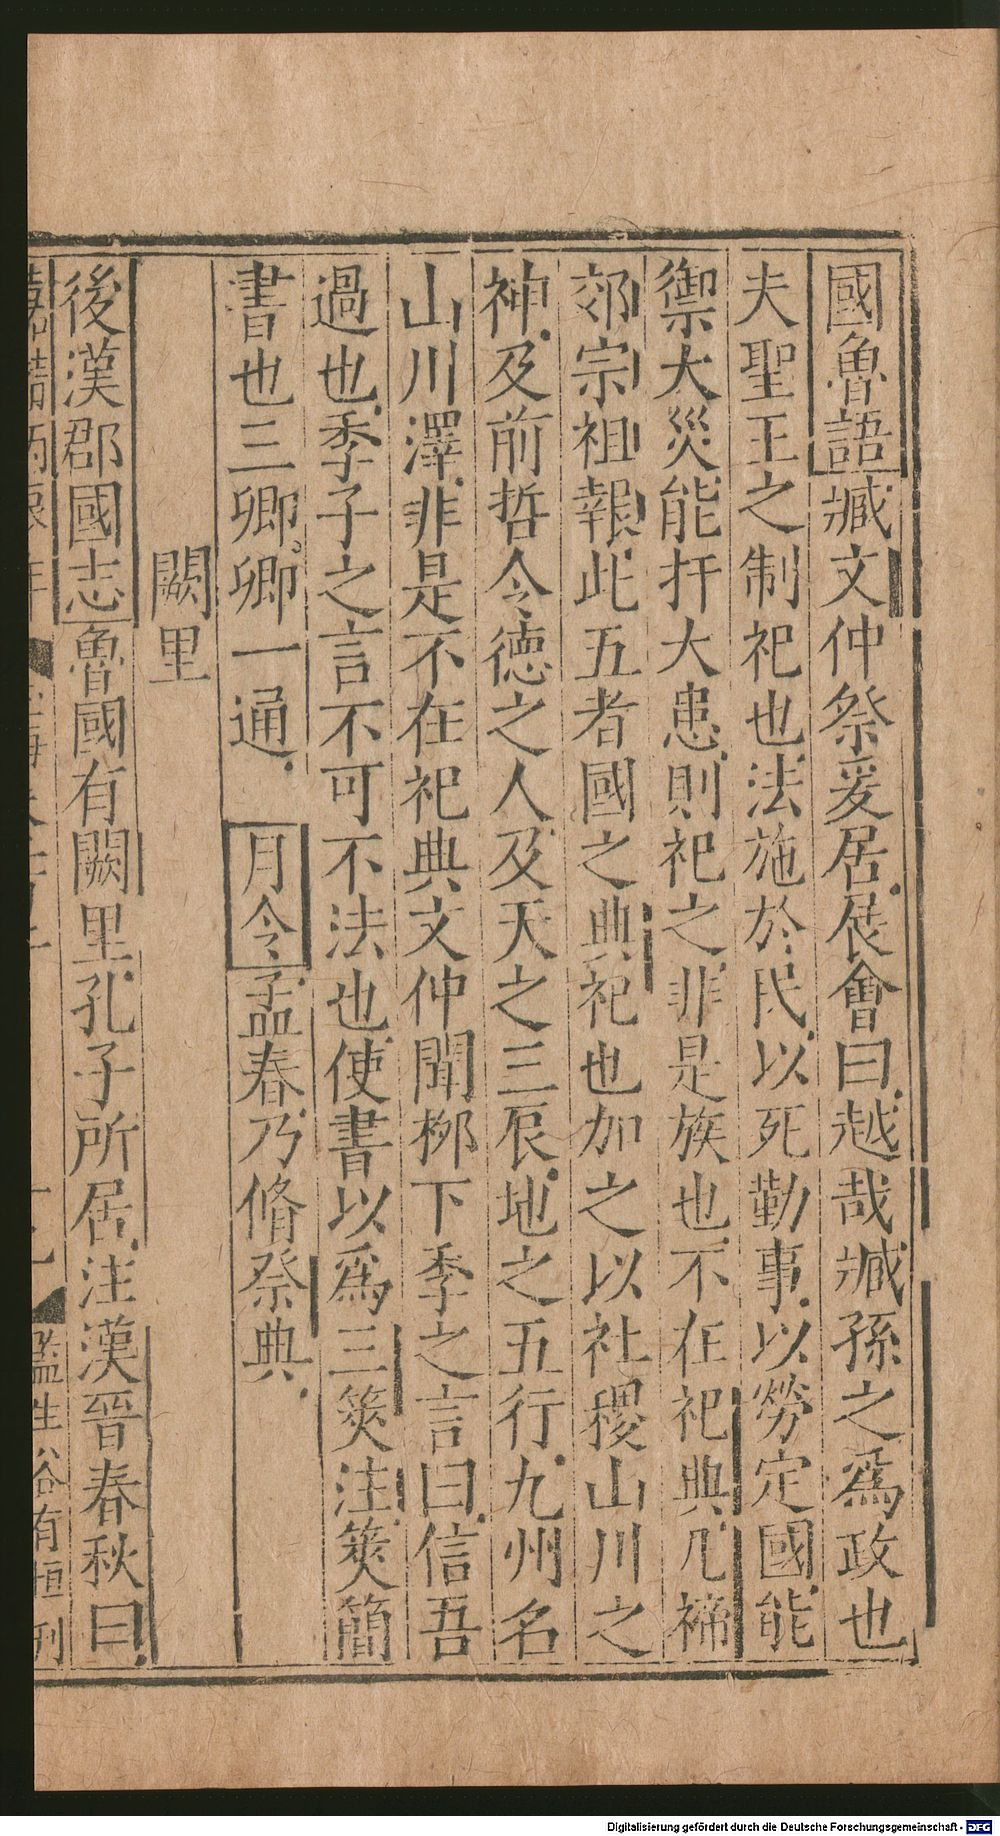 國魯語臧文仲祭爰居展會曰越哉臧孫之爲政也
夫聖王之制祀也法施於民以死勤事以勞定國能
禦大災能扞大患則祀之非是族也不在祀典凡禘
郊宗祖報此五者國之典祀也加之以社稷山川之
神及前哲令德之人及天之三辰地之五行九州名
山川澤非是不在祀典文仲聞桞下季之言曰信吾
過也季子之言不可不法也使書以爲三筴注筴簡
書也三卿卿一通月令孟春乃脩祭典
闕里
後漢郡國志魯國有闕里孔子所居注漢晉春秋曰
監生谷有恒刊
Digitalisierung gefördert durch die Deutsche Forschungsgemeinschaft - DFG